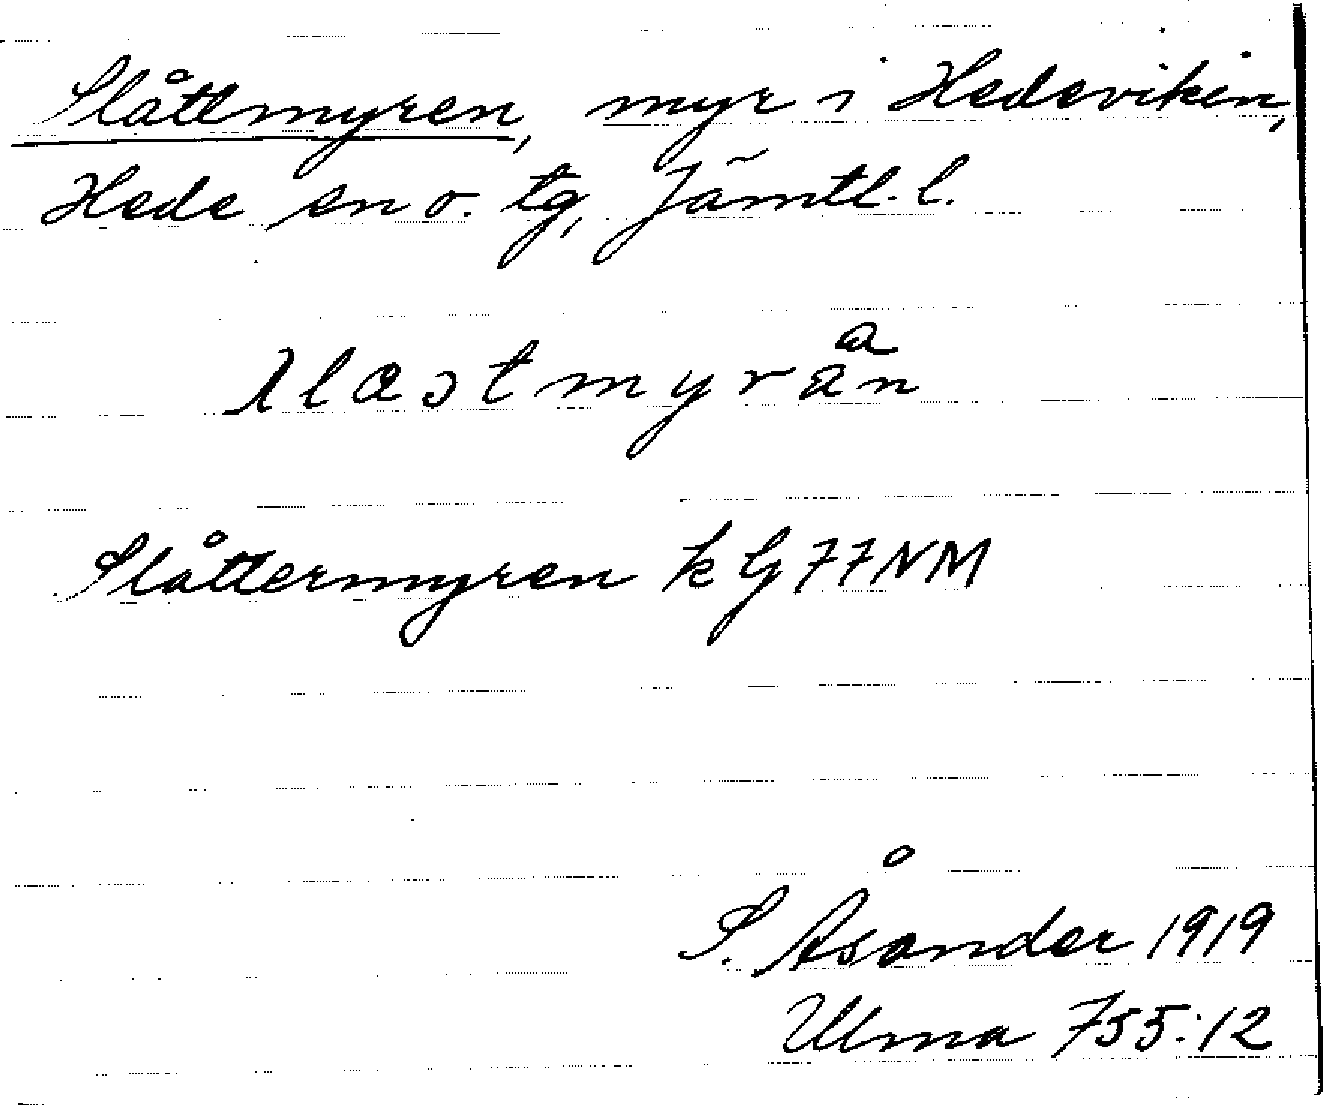 Slåttmyren, myr i Hedeviken,
Hede sn o. tg, Jämtl. l.
a
Slåttermyren k G 77 NM
S. Åsander 1919
Ulma 755:12